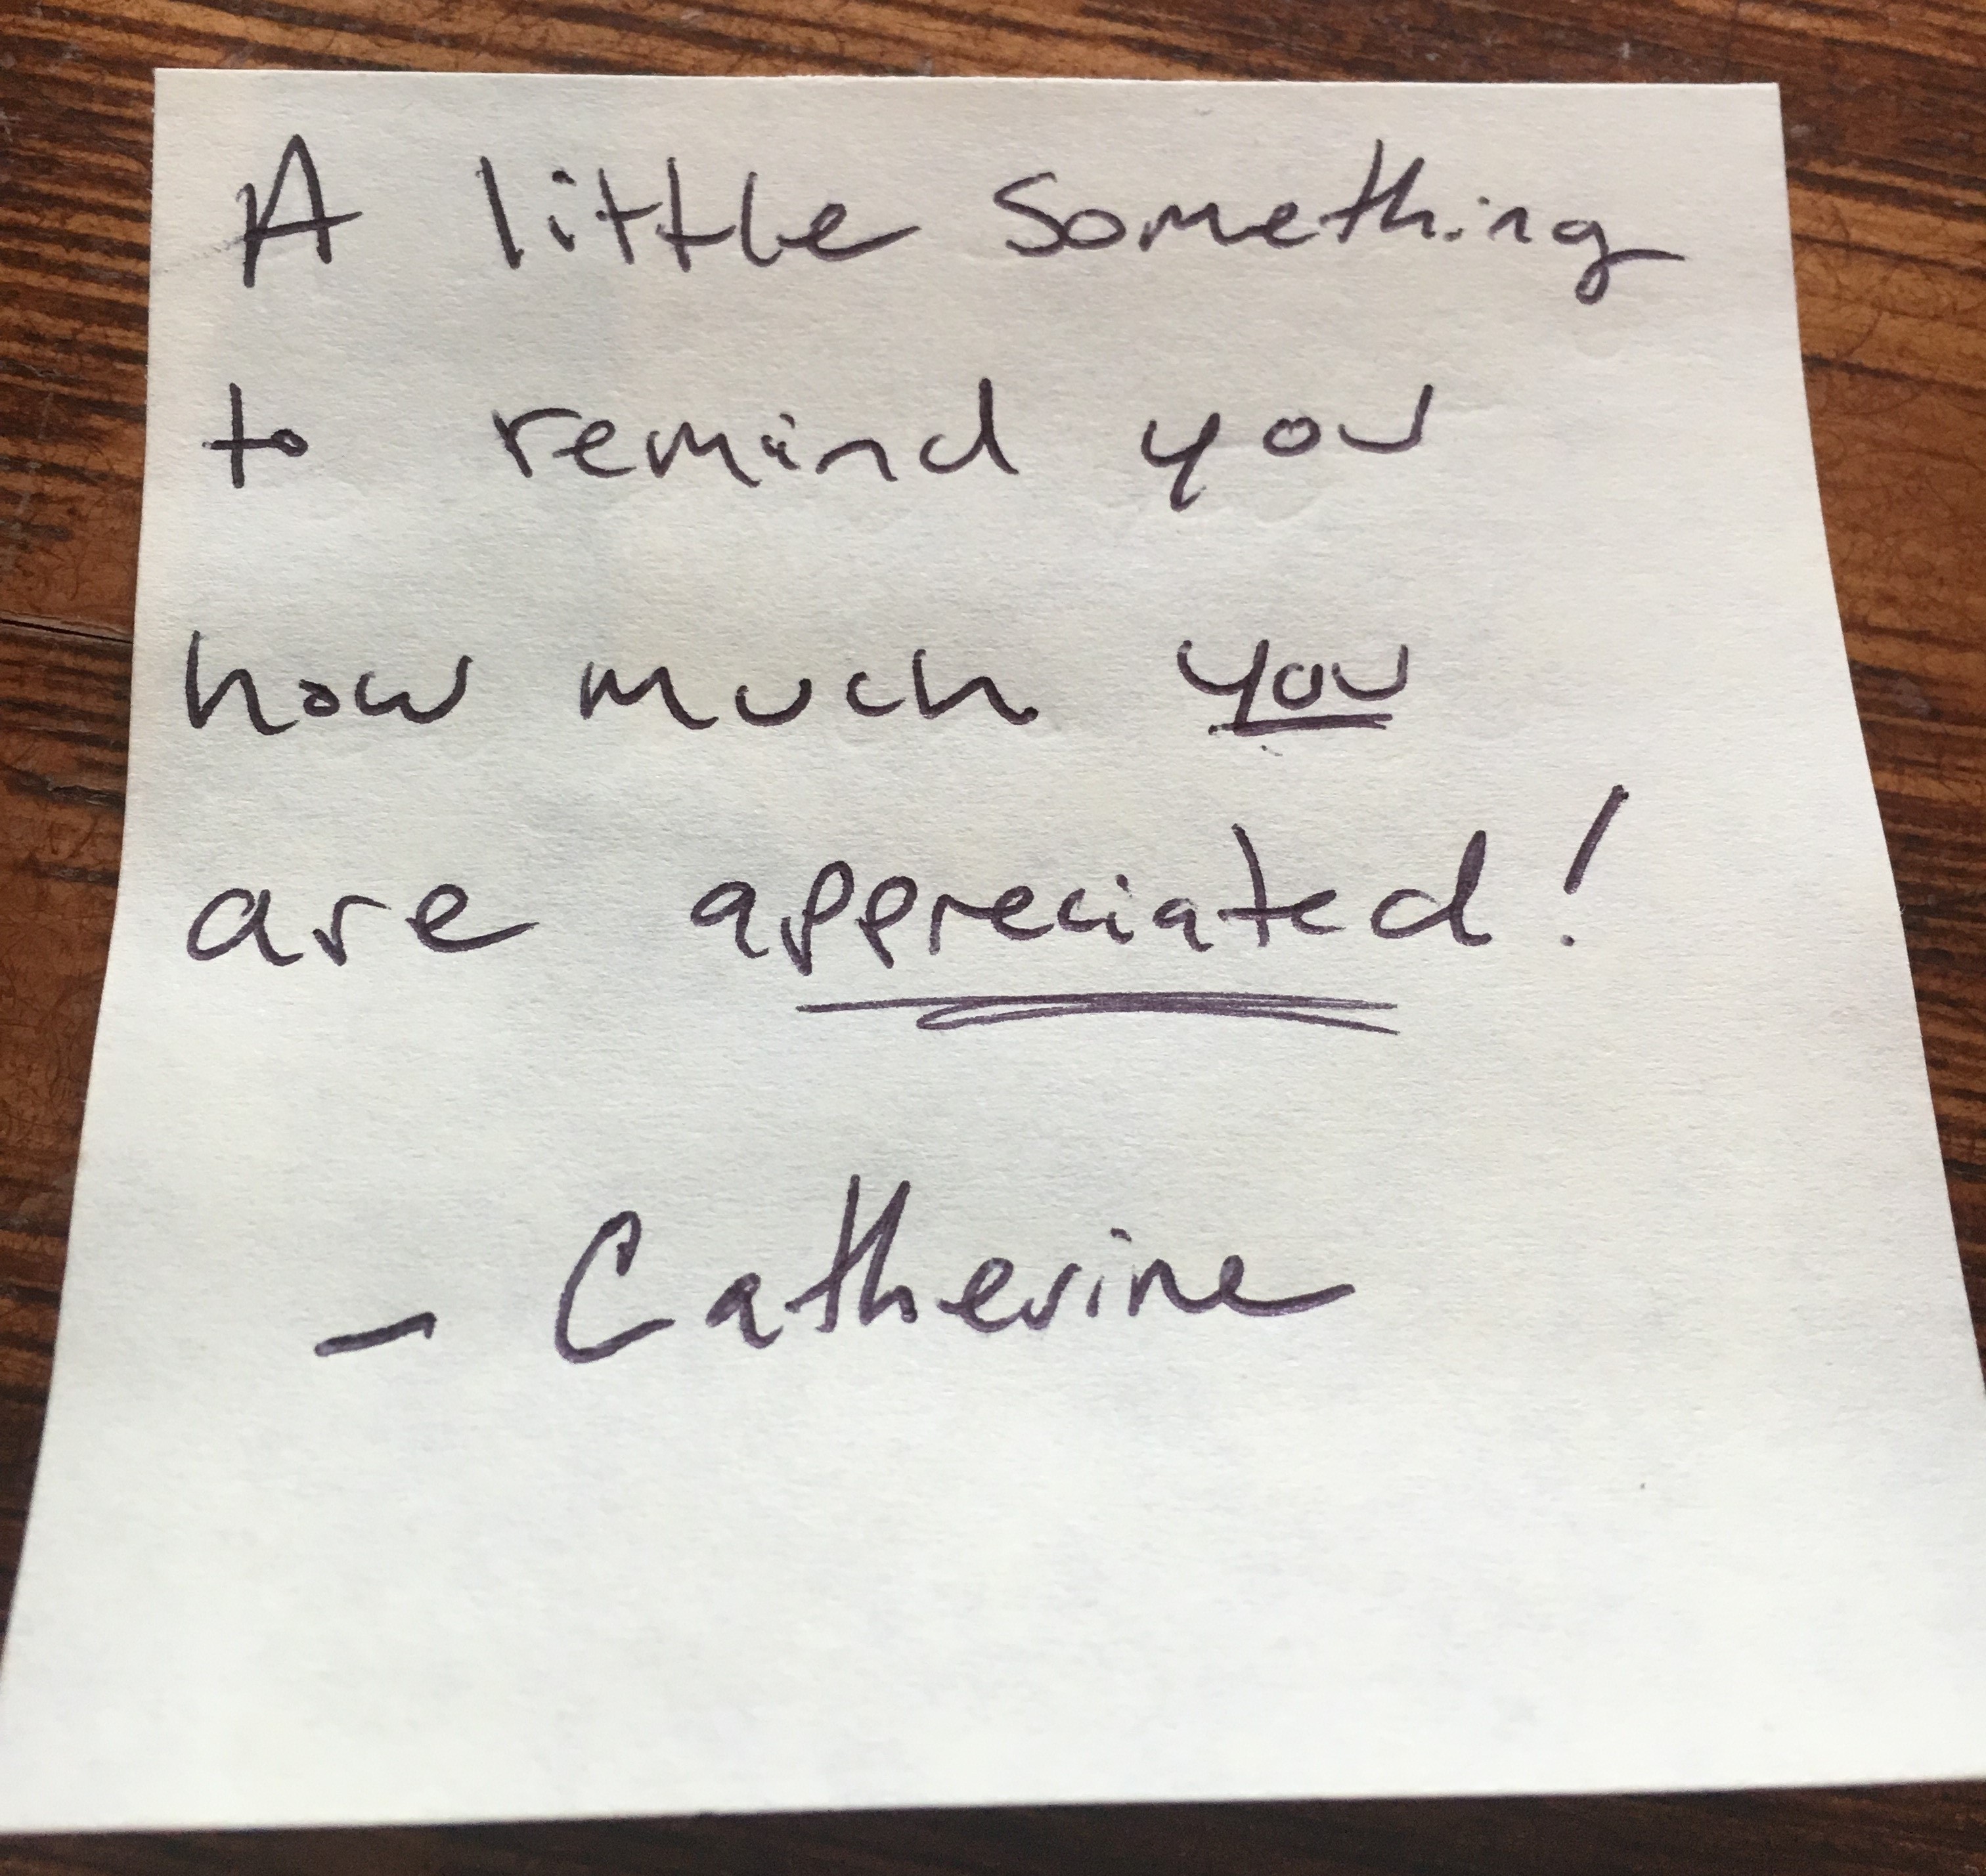 A little something
to remind you
how much you
are appreciated!
- Catherine